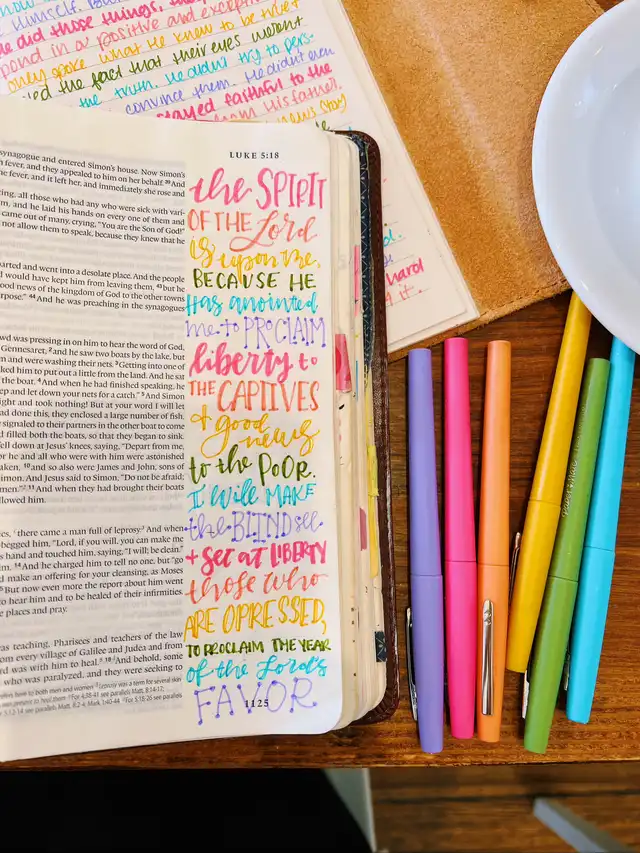 Himself. But
he did those things, the
pond in a positive and except
only spoke what He knew to be true
the fact that their eyes weren't
the truth. He didn't try to pers-
convince them. He didn't even
stayed faithful to the
from His father.
news story
hard
it.
LUKE 5:18
synagogue and entered Simon's house. Now Simon's
fever, and they appealed to him on her behalf. 39 And
the fever, and it left her, and immediately she rose and
all those who had any who were sick with vari-
and he laid his hands on every one of them and
came out of many, crying, "You are the Son of God!"
not allow them to speak, because they knew that he
parted and went into a desolate place. And the people
would have kept him from leaving them, 43 but he
good news of the kingdom of God to the other towns
purpose." 44 And he was preaching in the synagogues
was pressing in on him to hear the word of God,
Gennesaret, 2 and he saw two boats by the lake, but
and were washing their nets. 3 Getting into one of
asked him to put out a little from the land. And he sat
the boat. 4 And when he had finished speaking, he
deep and let down your nets for a catch." 5 And Simon
night and took nothing! But at your word I will let
had done this, they enclosed a large number of fish,
signaled to their partners in the other boat to come
filled both the boats, so that they began to sink.
fell down at Jesus' knees, saying, "Depart from me,
For he and all who were with him were astonished
taken, 10 and so also were James and John, sons of
Simon. And Jesus said to Simon, "Do not be afraid;
men." 11 And when they had brought their boats
followed him.
there came a man full of leprosy. And when
begged him, "Lord, if you will, you can make
his hand and touched him, saying, "I will; be clean."
14 And he charged him to tell no one, but "go
make an offering for your cleansing, as Moses
15 But now even more the report about him went
to hear him and to be healed of their infirmities.
places and pray.
was teaching, Pharisees and teachers of the law
from every village of Galilee and Judea and from
was with him to heal. 18 And behold, some
who was paralyzed, and they were seeking to
the SPIRIT
OF THE Lord
is upon me,
BECAUSE HE
has anointed
me to PROCLAIM
liberty to
THE CAPTIVES
+ good
news
to the POOR.
I will MAKE
the BLIND see
+ SET AT LIBERTY
those who
ARE OPRESSED,
TO PROCLAIM THE YEAR
of the Lord's
FAVOR
1125